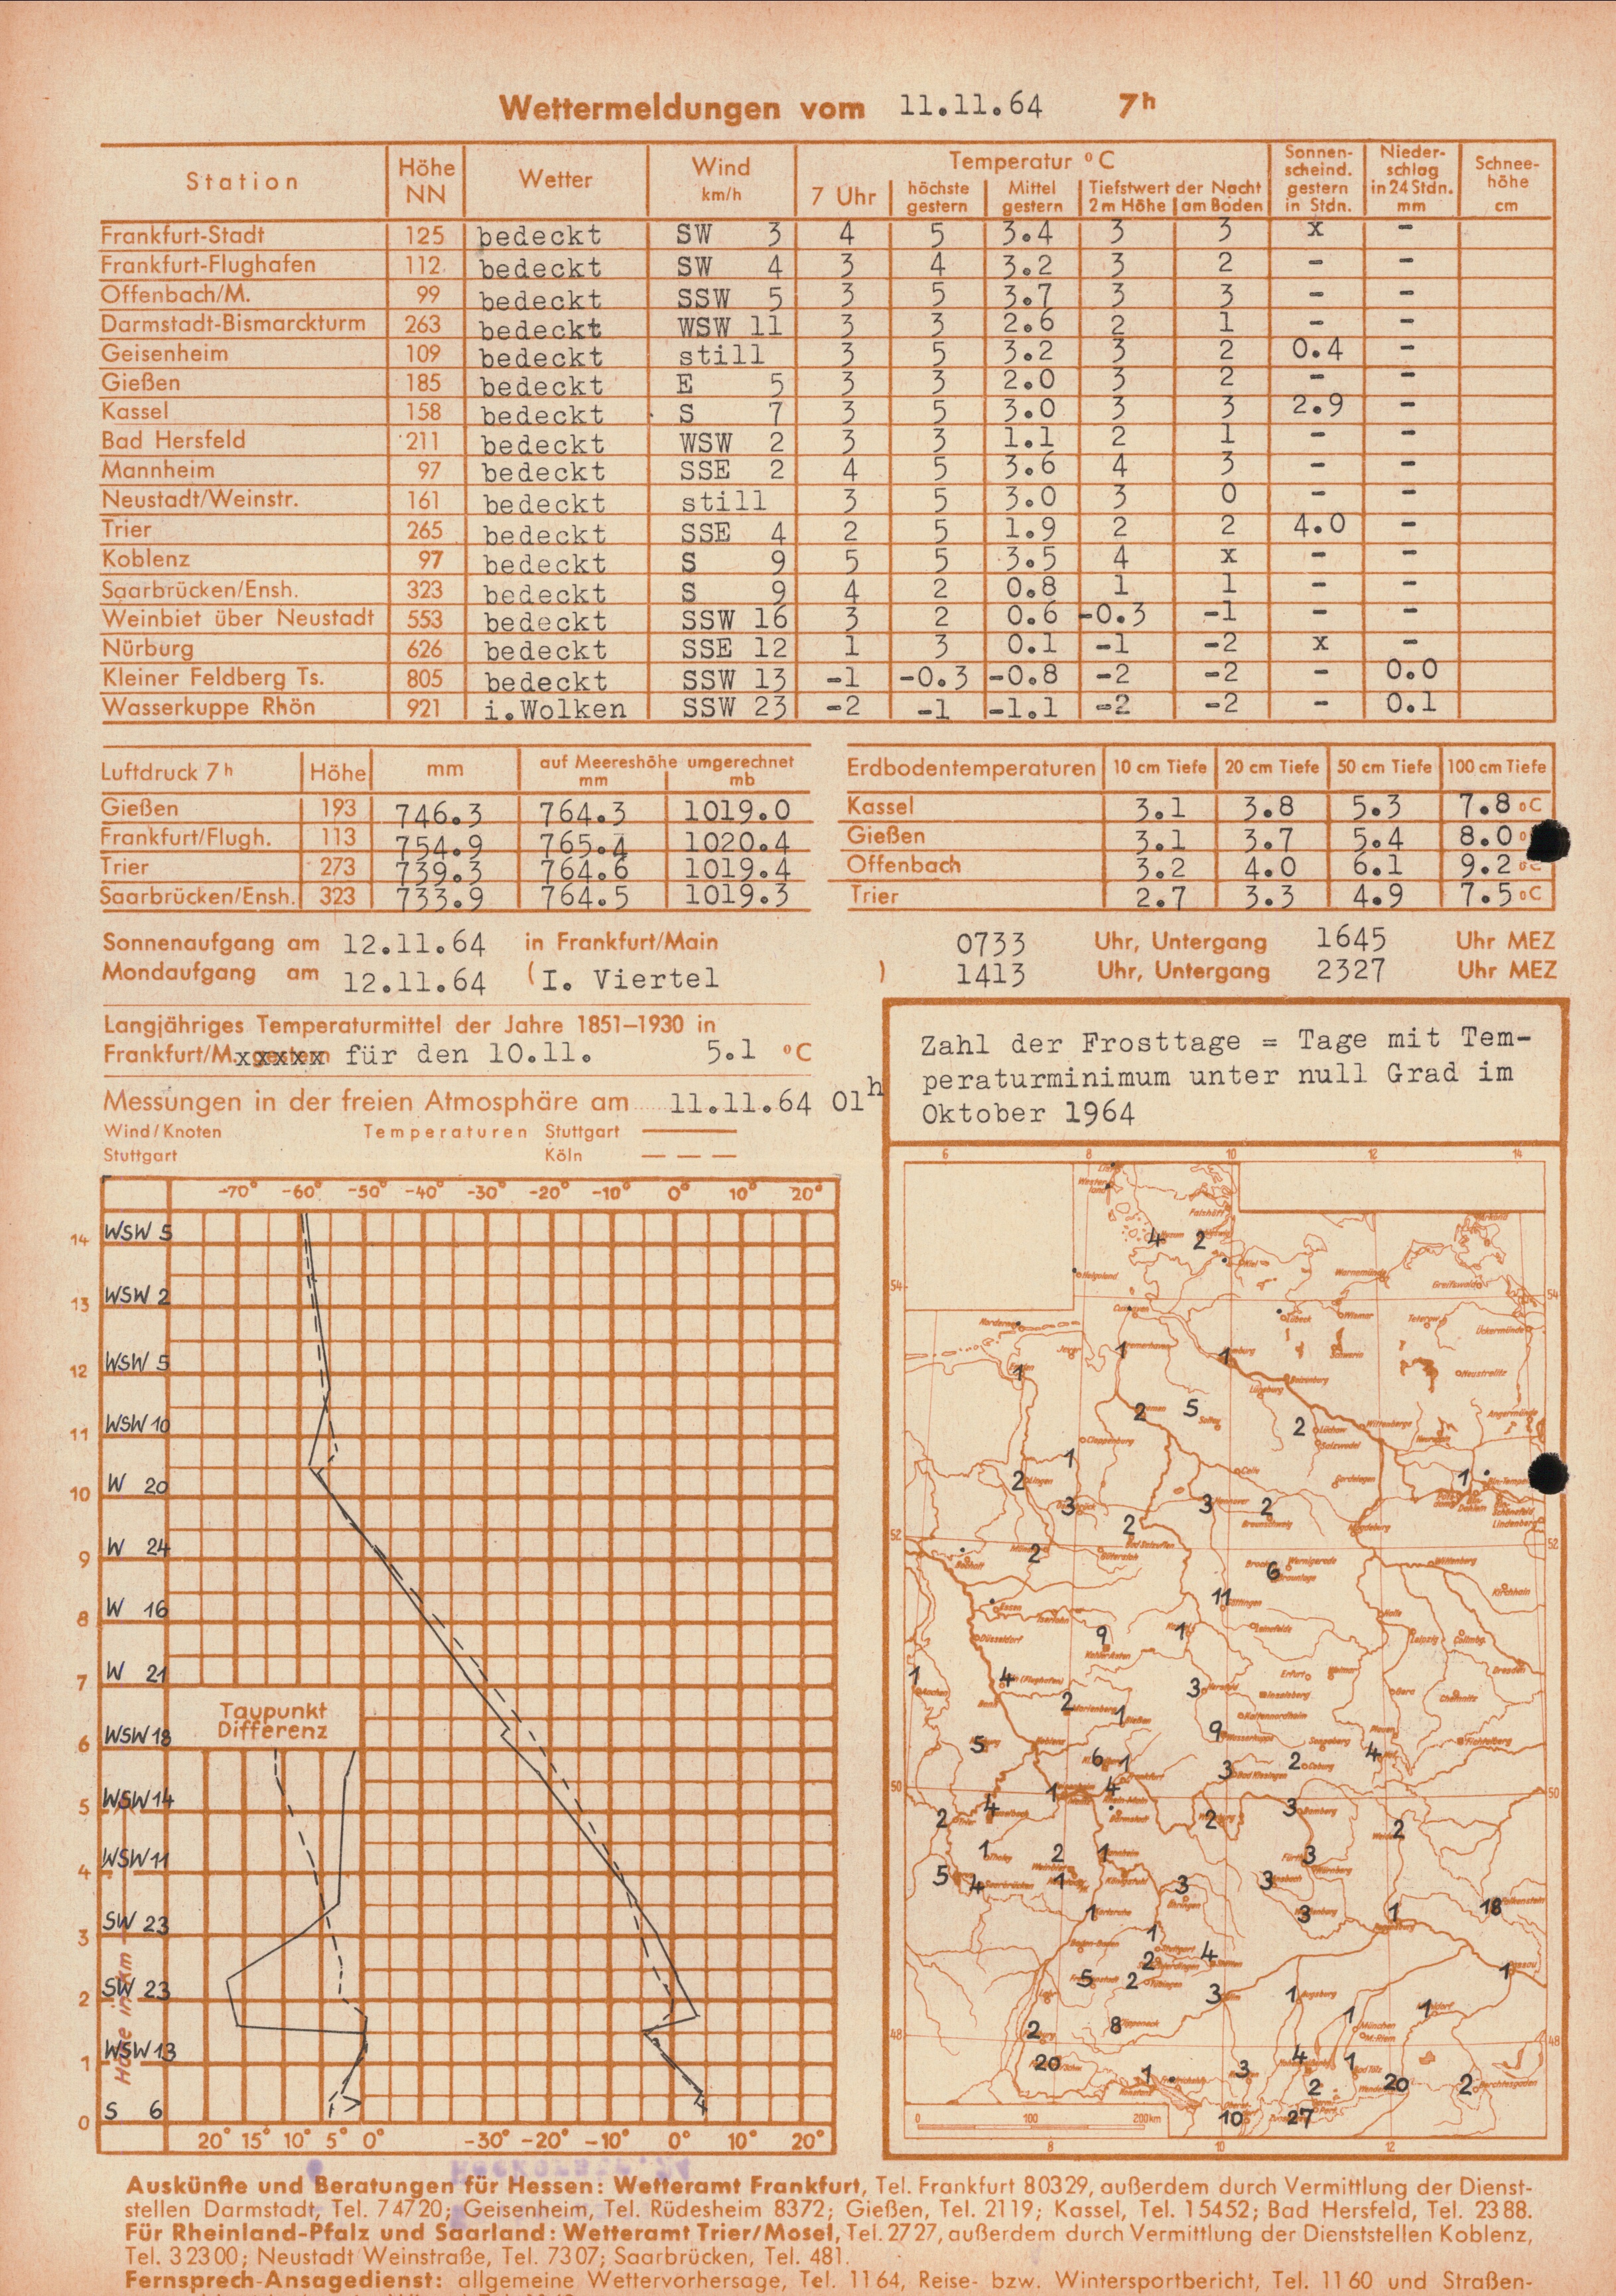 Wettermeldungen vom 11.11.64 7h
Station Höhe NN Wetter Wind km/h Temperatur °C Sonnenscheind. gestern in Stdn. Niederschlag in 24 Stdn. mm Schneehöhe cm
7 Uhr höchste gestern Mittel gestern Tiefstwert der Nacht 2 m Höhe am Boden
Frankfurt-Stadt 125 bedeckt SW 3 4 5 3.4 3 3 x -
Frankfurt-Flughafen 112 bedeckt SW 4 3 4 3.2 3 2 - -
Offenbach/M. 99 bedeckt SSW 5 3 5 3.7 3 3 - -
Darmstadt-Bismarckturm 263 bedeckt WSW 11 3 3 2.6 2 1 - -
Geisenheim 109 bedeckt still 3 5 3.2 3 2 0.4 -
Gießen 185 bedeckt E 5 3 3 2.0 3 2 - -
Kassel 158 bedeckt S 7 3 5 3.0 3 3 2.9 -
Bad Hersfeld 211 bedeckt WSW 2 3 3 1.1 2 1 - -
Mannheim 97 bedeckt SSE 2 4 5 3.6 4 3 - -
Neustadt/Weinstr. 161 bedeckt still 3 5 3.0 3 0 - -
Trier 265 bedeckt SSE 4 2 5 1.9 2 2 4.0 -
Koblenz 97 bedeckt S 9 5 5 3.5 4 x - -
Saarbrücken/Ensh. 323 bedeckt S 9 4 2 0.8 1 1 - -
Weinbiet über Neustadt 553 bedeckt SSW 16 3 2 0.6 -0.3 -1 - -
Nürburg 626 bedeckt SSE 12 1 3 0.1 -1 -2 x -
Kleiner Feldberg Ts. 805 bedeckt SSW 13 -1 -0.3 -0.8 -2 -2 - 0.0
Wasserkuppe Rhön 921 i.Wolken SSW 23 -2 -1 -1.1 -2 -2 - 0.1
Luftdruck 7h Höhe mm auf Meereshöhe umgerechnet mm mb
Gießen 193 746.3 764.3 1019.0
Frankfurt/Flugh. 113 754.9 765.4 1020.4
Trier 273 739.3 764.6 1019.4
Saarbrücken/Ensh. 323 733.9 764.5 1019.3
Erdbodentemperaturen 10 cm Tiefe 20 cm Tiefe 50 cm Tiefe 100 cm Tiefe
Kassel 3.1 3.8 5.3 7.8 °C
Gießen 3.1 3.7 5.4 8.0
Offenbach 3.2 4.0 6.1 9.2 °C
Trier 2.7 3.3 4.9 7.5 °C
Sonnenaufgang am 12.11.64 in Frankfurt/Main 0733 Uhr, Untergang 1645 Uhr MEZ
Mondaufgang am 12.11.64 (I. Viertel ) 1413 Uhr, Untergang 2327 Uhr MEZ
Langjähriges Temperaturmittel der Jahre 1851–1930 in
Frankfurt/M. xxxxx für den 10.11. 5.1 °C
Messungen in der freien Atmosphäre am 11.11.64 01h
Wind/Knoten Temperaturen Stuttgart
Stuttgart Köln
-70° -60° -50° -40° -30° -20° -10° 0° 10° 20°
14 WSW 5
13 WSW 2
12 WSW 5
11 WSW 10
10 W 20
9 W 24
8 W 16
7 W 21
Taupunkt
Differenz
6 WSW 18
5 WSW 14
4 WSW 11
3 SW 23
2 SW 23
1 WSW 13
0 S 6
Höhe in km
20° 15° 10° 5° 0° -30° -20° -10° 0° 10° 20°
Zahl der Frosttage = Tage mit Tem-
peraturminimum unter null Grad im
Oktober 1964
6 8 10 12 14
4 2
54 54
1 1
1
2 5 2
1
2 1
3 3 2
2
52 2 52
6
11
9 1
1 4 3
2 1
9
5 6 1 3 2 4
50 1 4 50
2 4 2 3 2
1 2 1 3
5 4 1 3 3
1 3 1 18
1 4
2 1
5 2 3 1
1 1
48 2 8 48
20 4 1
1 3 2 20 2
10 27
0 100 200km
8 10 12
Auskünfte und Beratungen für Hessen: Wetteramt Frankfurt, Tel. Frankfurt 80329, außerdem durch Vermittlung der Dienst-
stellen Darmstadt, Tel. 74720; Geisenheim, Tel. Rüdesheim 8372; Gießen, Tel. 2119; Kassel, Tel. 15452; Bad Hersfeld, Tel. 2388.
Für Rheinland-Pfalz und Saarland: Wetteramt Trier/Mosel, Tel. 2727, außerdem durch Vermittlung der Dienststellen Koblenz,
Tel. 32300; Neustadt Weinstraße, Tel. 7307; Saarbrücken, Tel. 481.
Fernsprech-Ansagedienst: allgemeine Wettervorhersage, Tel. 1164, Reise- bzw. Wintersportbericht, Tel. 1160 und Straßen-